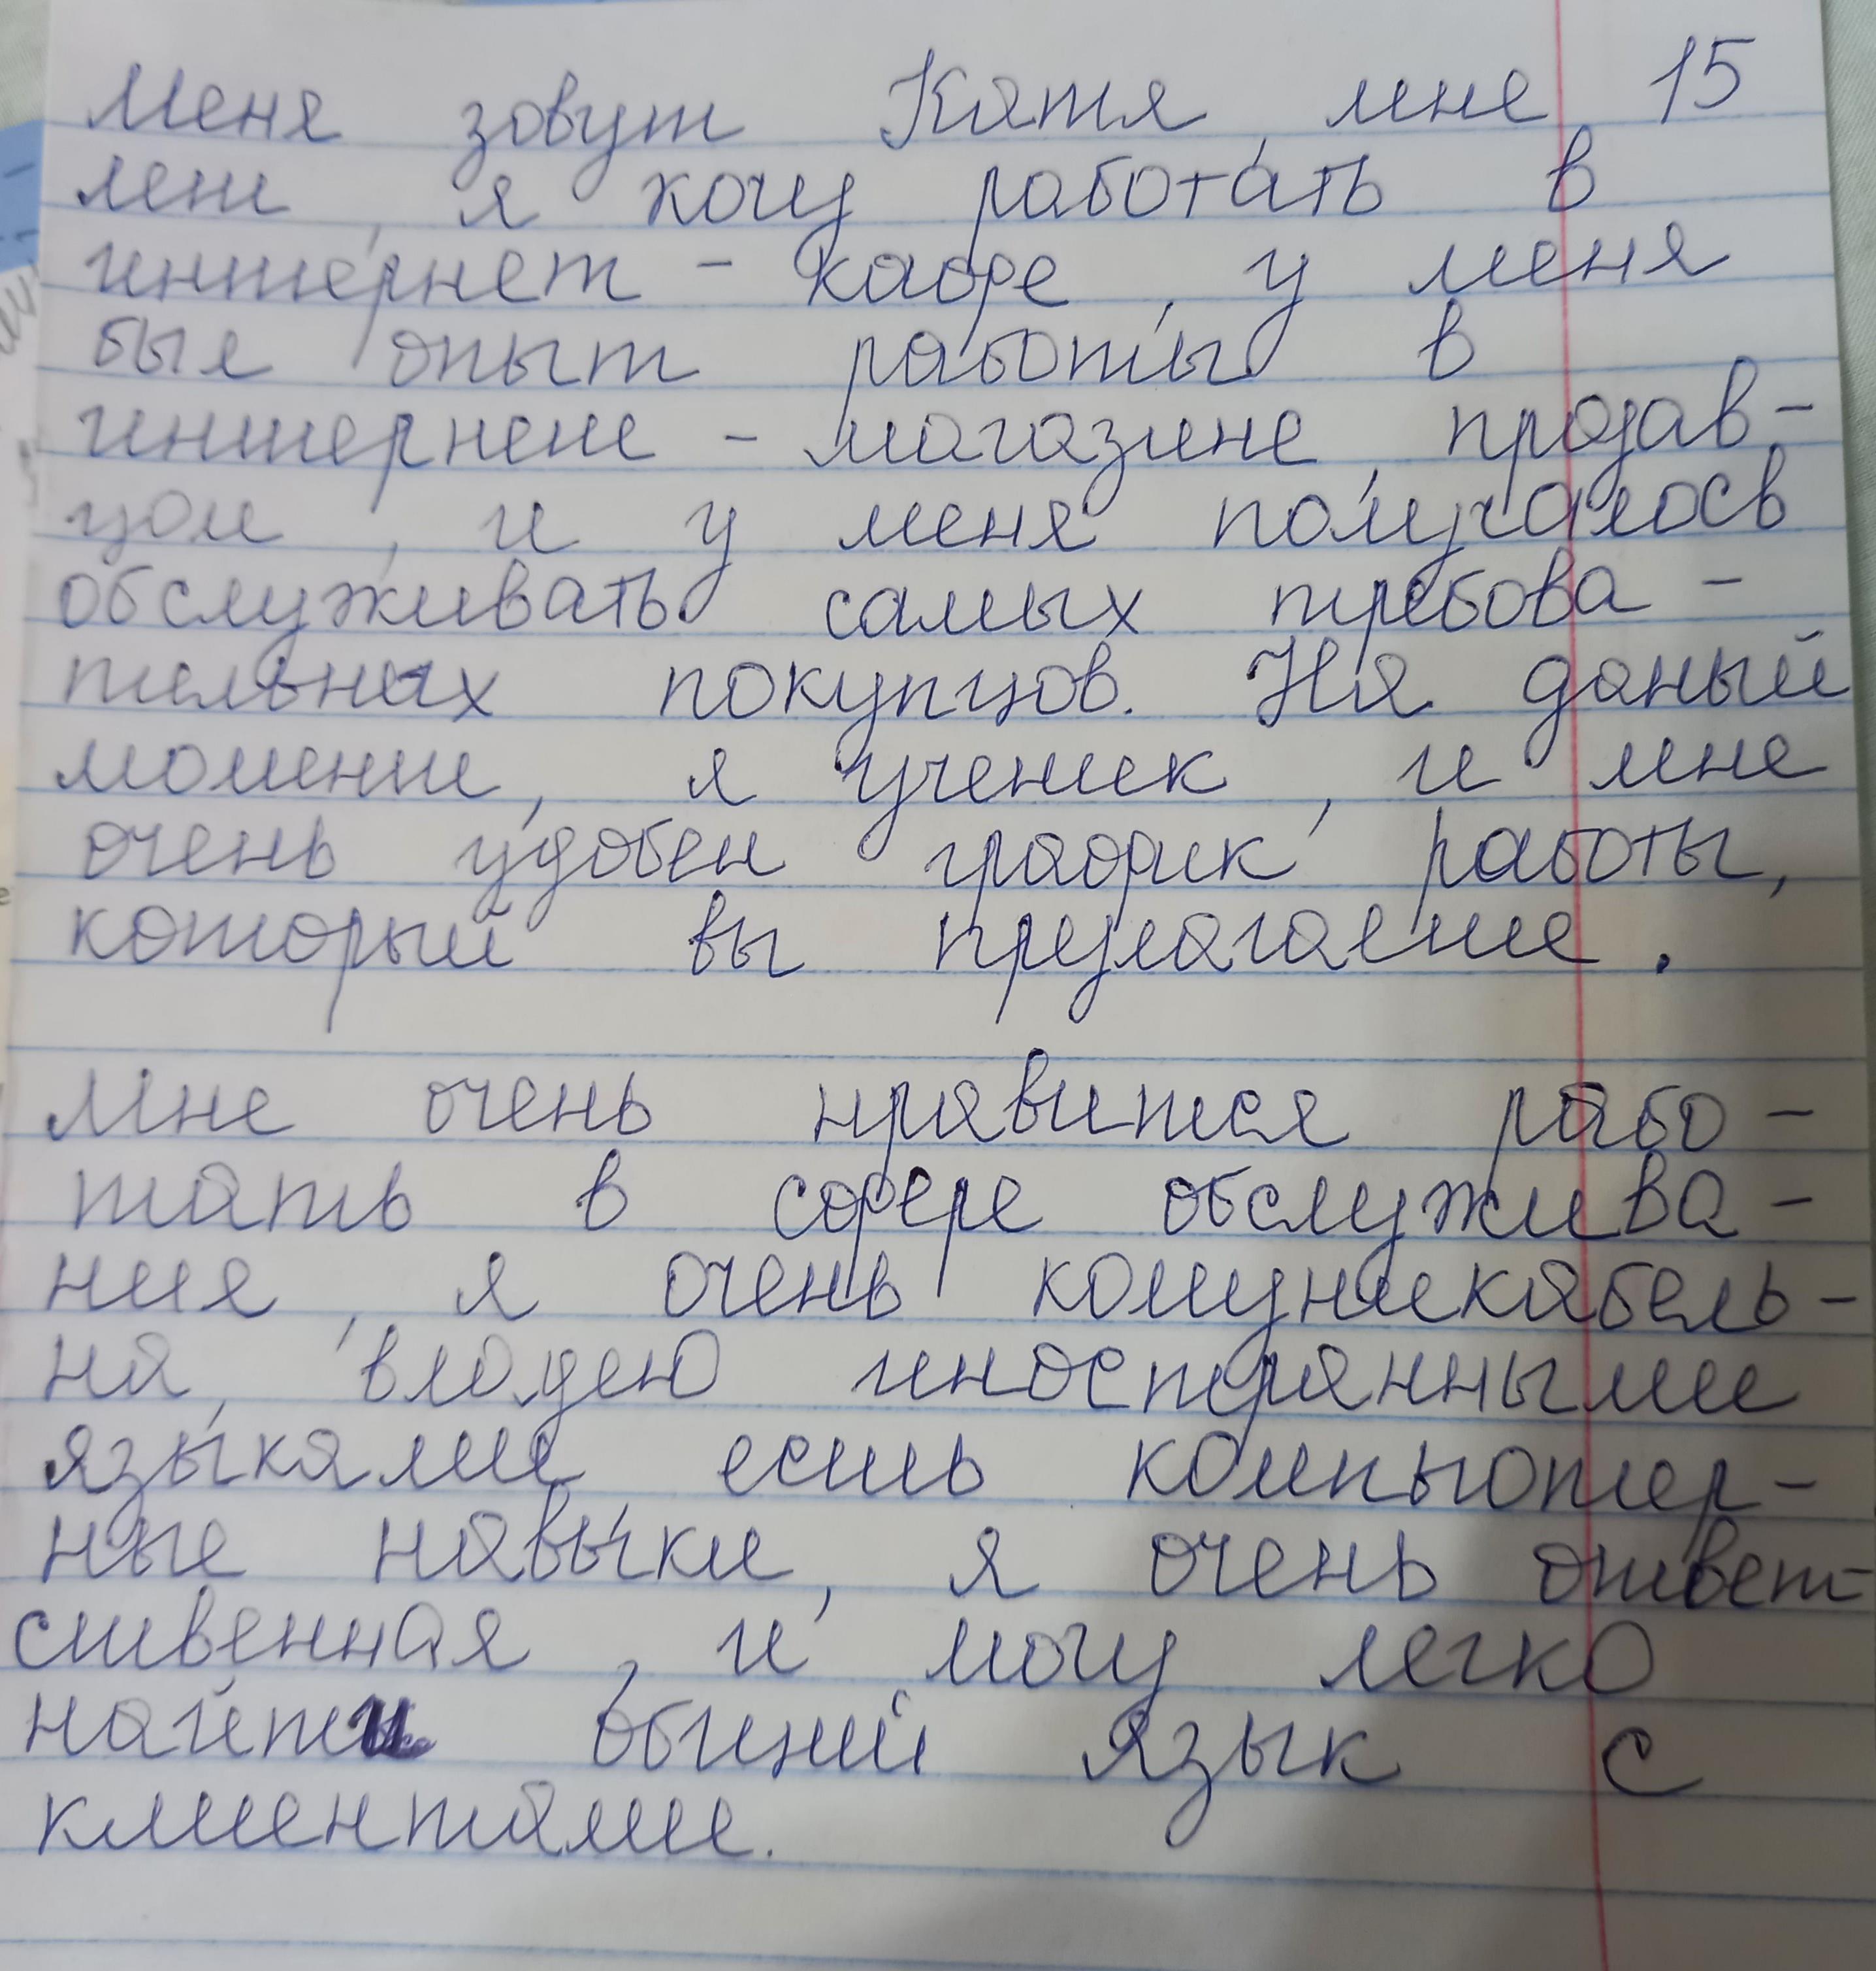 Меня зовут Катя, мне 15
лет, я хочу работать в
интернет - кафе, у меня
был опыт работы в
интернет - магазине, продав-
цом, и у меня получалось
обслуживать самых требова-
тельных покупцов. На даный
момент, я ученик, и мне
очень удобен график работы,
который вы предлагаете.
Мне очень нравится рабо-
тать в сфере обслужива-
ния, я очень комуникабель-
на, владею иностранными
языками, есть компьютер-
ные навыки, я очень ответ-
ственная, и могу легко
найти общий язык с
клиентами.